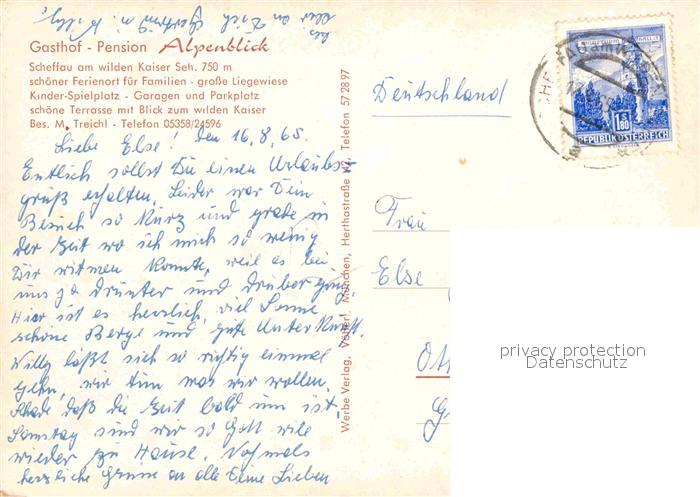 Gasthof - Pension Alpenblick
Scheffau am wilden Kaiser Seh. 750 m
schöner Ferienort für Familien - große Liegewiese
Kinder-Spielplatz - Garagen und Parkplatz
schöne Terrasse mit Blick zum wilden Kaiser
Bes. M. Treichl - Telefon 05358/24596
Liebe Else! den 16.8.65.
Entlich sollst Du einen Urlaubs-
gruß erhalten. Leider war Dein
Besuch so kurz und grade in
der Zeit wo ich mich so wenig
Dir witmen konnte, weil es bei
uns ja drunter und drüber ging.
Hier ist es herrlich, viel Sonne
schöne Berge und gute Unterkunft.
Willy läßt sich so richtig einmal
gehn, wir tun was wir wollen.
Schade daß die Zeit bald um ist.
Samstag sind wir so Gott will
wieder zu Hause. Nochmals
herzliche Grüsse an alle Deine Lieben
Werbe-Verlag, Volker, München, Herthastraße 42, Telefon 57 28 97
Deutschland
Frau
Else
Ott
REPUBLIK ÖSTERREICH
1.80
S
privacy protection
Datenschutz